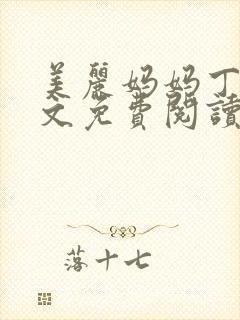 美麗妈妈丁
文免費閱讀
落十七